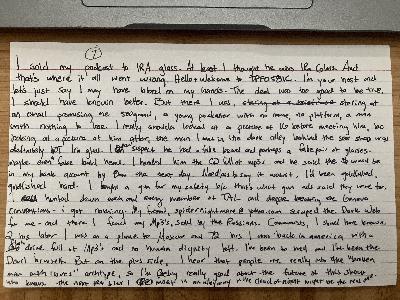 ①
I sold my podcast to IRA glass. At least I thought he was IRA Glass. And
that's where it all went wrong. Hello + welcome to I'm your host and
let's just say I may have blood on my hands. The deal was too good to be true,
I should have known better. But there I was, staring at
an email promising me, a young podcaster with no name, no platform, a man
with nothing to lose. I really should've looked at a picture of IRA before meeting him, bc
looking at a picture of him after, the man I met in the dark alley behind the was
definitely NOT Ira glass. I suspect he had a fake beard and perhaps a fake pair of glasses.
maybe even false head hair. I handed him the CD full of mp3s and he said the $ would be
in my bank account by 8am the next day. Needless to say it wasn't. I'd been goldfished,
goldfished hard. I bought a gun for my safety b/c that's what gun ads said they were for.
hunted down each and every member of TAL and despite the Geneve
Conventions - I got nothing. My friend, scraped the Dark Web
for me - and there I found my MP3's, sold by the Russians. Communists, I should have known
. I was on a plane to Moscow and 72 hrs I was back in america, with a
drive full of Mp3's and no human dignity left. I've been to hell and I've been the
Devil himself. But on the plus side, I hear that people are really into the "broken
man with issues" archetype, so I'm feeling really good about the future of this show.
who knows, the next IRA Glass I meet in an alleyway in the dead of night might be the real one.